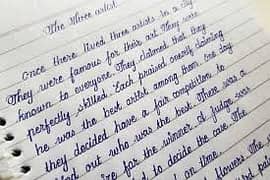 The three artist.
Once there lived three artists in a city.
They were famous for their art. They were
known to everyone. They claimed that they
perfectly skilled. Each praised onerly claiming
he was the best artist among them. one day
they decided have a fair competition to
out who was the best. There was a
for the winner of judge was
to decide the case. The
on time.
flowers. The